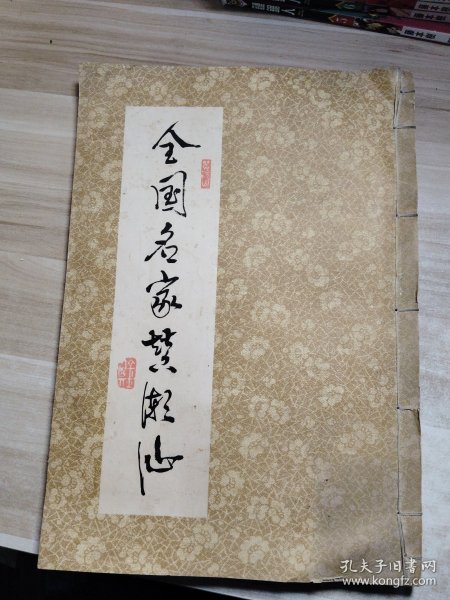 全国名家赞潮汕
孔夫子旧书网
www.kongfz.com